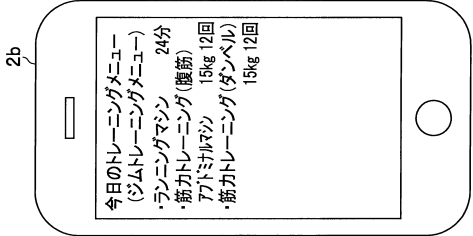 2b
今日のトレーニングメニュー
(ジムトレーニングメニュー)
・ランニングマシン 24分
・筋力トレーニング(腹筋)
アブドミナルマシン 15kg 12回
・筋力トレーニング(ダンベル)
15kg 12回